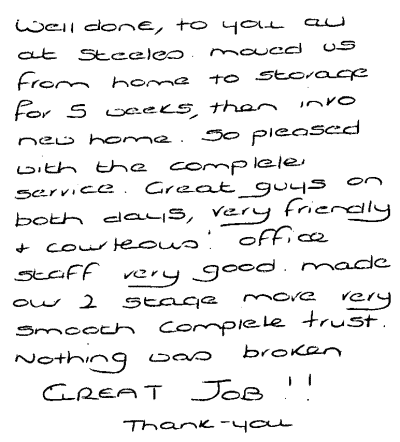 Well done, to you all
at Steeles. moved us
from home to storage
for 5 weeks, then into
new home. So pleased
with the complete
service. Great guys on
both days, very friendly
+ courteous! office
staff very good. made
our 2 stage move very
smooth complete trust.
Nothing was broken
GREAT JOB!!
Thank-you